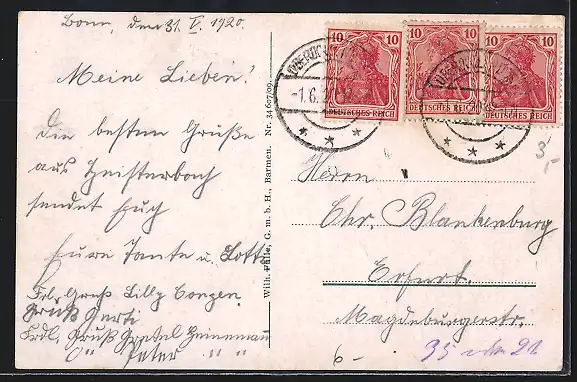 Bonn, den 31. V. 1920.
Meine Lieben!
Die besten Grüße
aus Heisterbach
sendet Euch
Eure Tante u. Lotti
Frdl. Gruß Lilly Congen.
Gruß Gerti
Frdl. Gruß Gretel Heinemann
" Peter " "
Wilh. Fülle, G. m. b. H., Barmen. Nr. 34607/09.
10 10
DEUTSCHES REICH
10 10
DEUTSCHES REICH
10 10
DEUTSCHES REICH
-1.6.
3,-
Herrn
Chr. Blankenburg
Erfurt.
Magdeburgerstr.
6-